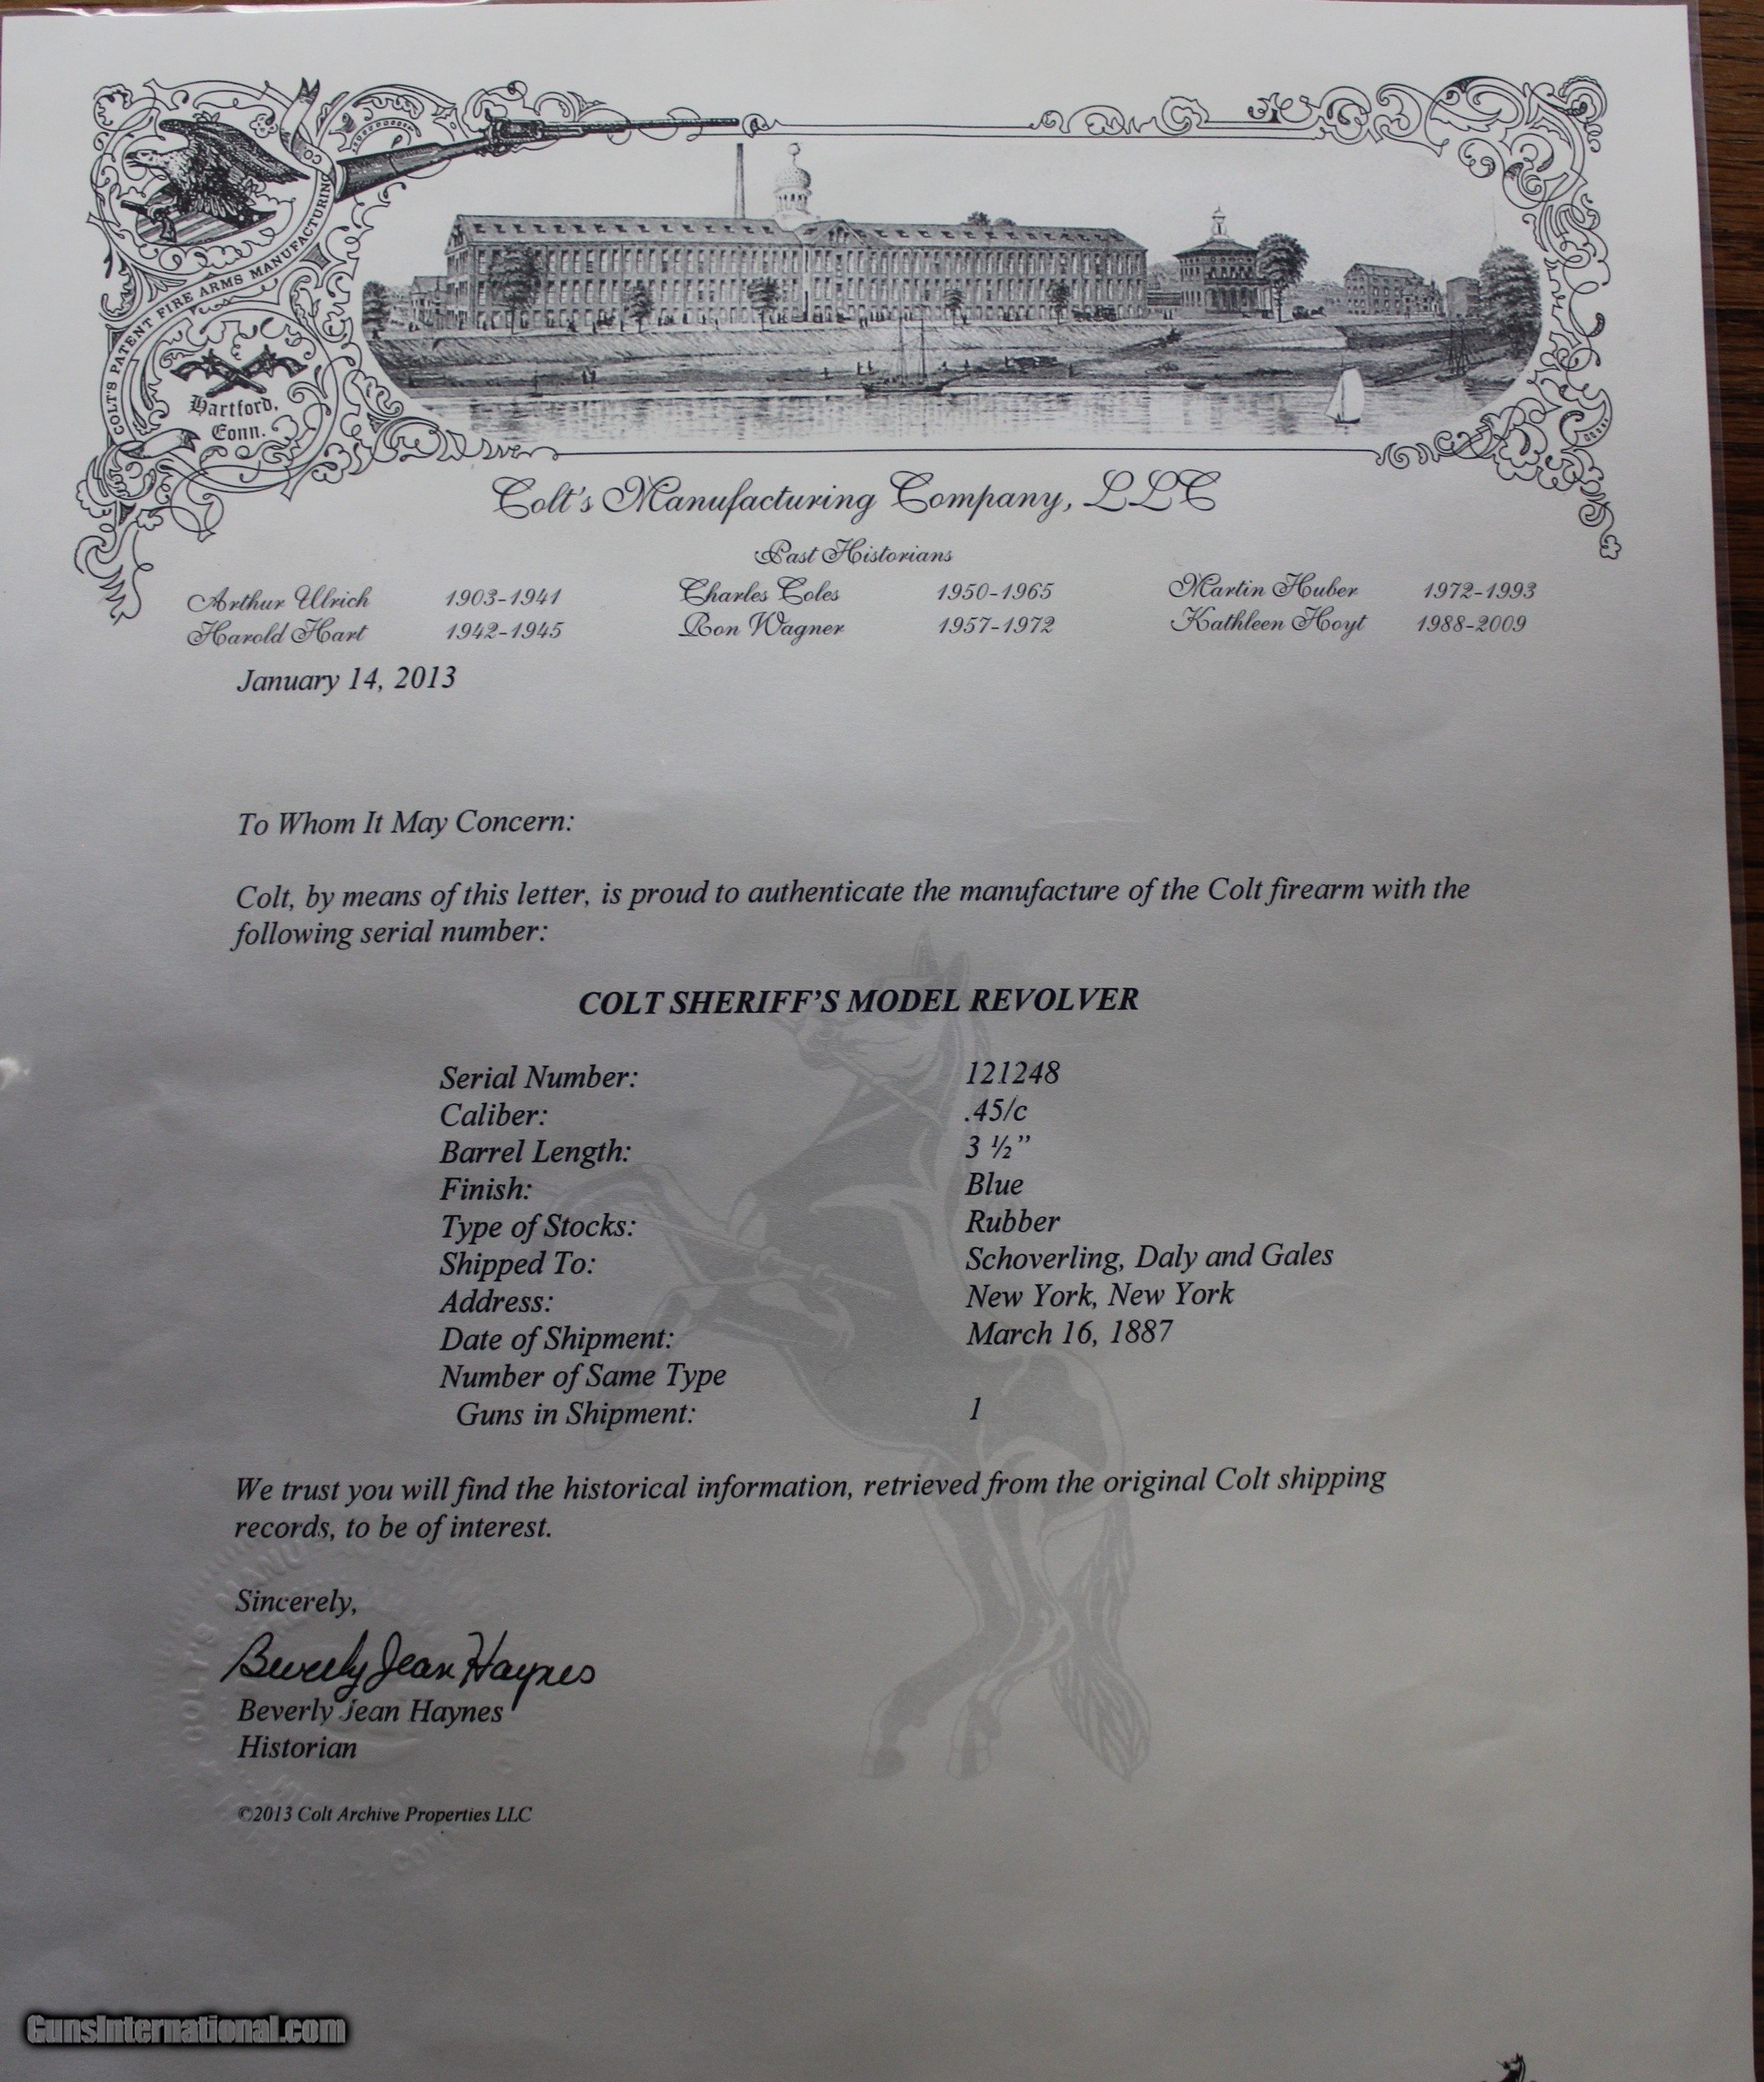 COLT'S PATENT FIRE ARMS MANUFACTURING CO
Hartford,
Conn.
Colt's Manufacturing Company, LLC
Past Historians
Arthur Ulrich 1903-1941 Charles Coles 1950-1965 Martin Huber 1972-1993
Harold Hart 1942-1945 Ron Wagner 1957-1972 Kathleen Hoyt 1988-2009
January 14, 2013
To Whom It May Concern:
Colt, by means of this letter, is proud to authenticate the manufacture of the Colt firearm with the
following serial number:
COLT SHERIFF'S MODEL REVOLVER
Serial Number: 121248
Caliber: .45/c
Barrel Length: 3 ½”
Finish: Blue
Type of Stocks: Rubber
Shipped To: Schoverling, Daly and Gales
Address: New York, New York
Date of Shipment: March 16, 1887
Number of Same Type
Guns in Shipment: 1
We trust you will find the historical information, retrieved from the original Colt shipping
records, to be of interest.
Sincerely,
Beverly Jean Haynes
Beverly Jean Haynes
Historian
©2013 Colt Archive Properties LLC
COLT'S MANU
GunsInternational.com